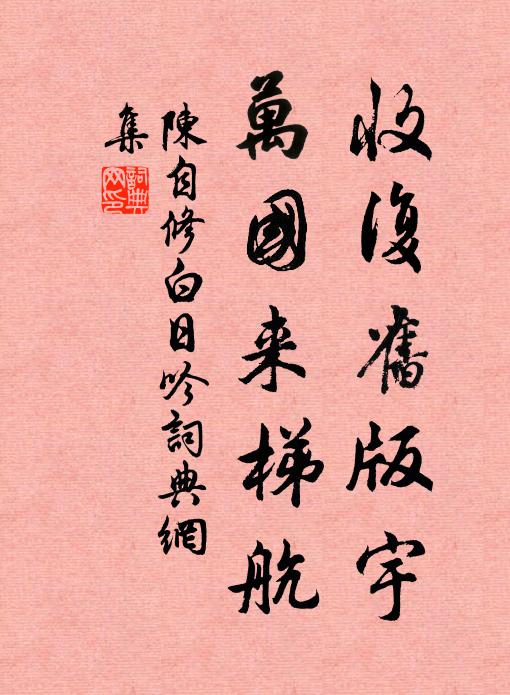 收復舊版宇
萬國来梯航
陳自修白日吟詞典網
集
詞典网印